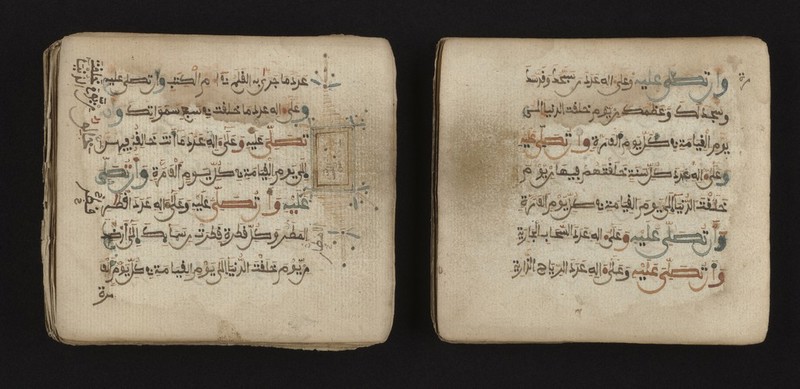 عدد ما جرى به القلم في ام الكتب وان تصلي عليه
وعلى اله عدد ما خلقت في سبع سمواتك وان
تصلي عليه وعلى اله عدد ما انت خالقه فيهن
الى يوم القيامة في كل يوم الف مرة وان تصلي
عليه وان تصلي عليه وعلى اله عدد قطر
المطر وكل قطرة قطرت من سمائك الى ارضك
من يوم خلقت الدنيا الى يوم القيامة في كل يوم الف
مرة
وان تصلي عليه وعلى اله عدد من سبحك وقدسك
وسجد لك وعظمك من يوم خلقت الدنيا الى
يوم القيامة في كل يوم الف مرة وان تصلي عليه
وعلى اله عدد كل سنة خلقتهم فيها من يوم
خلقت الدنيا الى يوم القيامة في كل يوم الف مرة
وان تصلي عليه وعلى اله عدد السحاب الجارية
وان تصلي عليه وعلى اله عدد الرياح الذارية